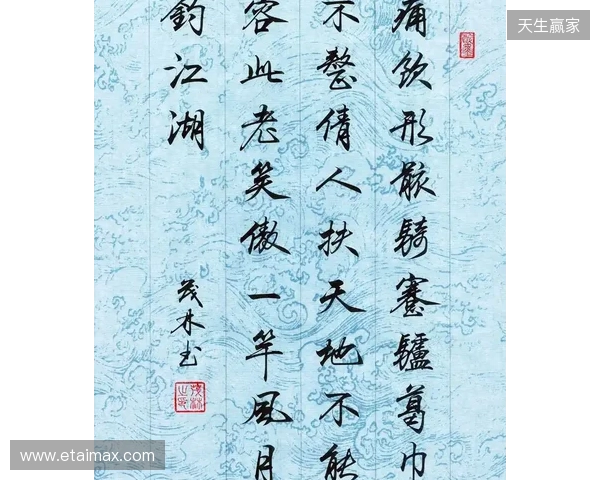 痛飲形骸騎蹇驢葛巾
不整倩人扶天地不能
容此老笑傲一竿風月
釣江湖
茂林书
天生赢家
www.etaimax.com